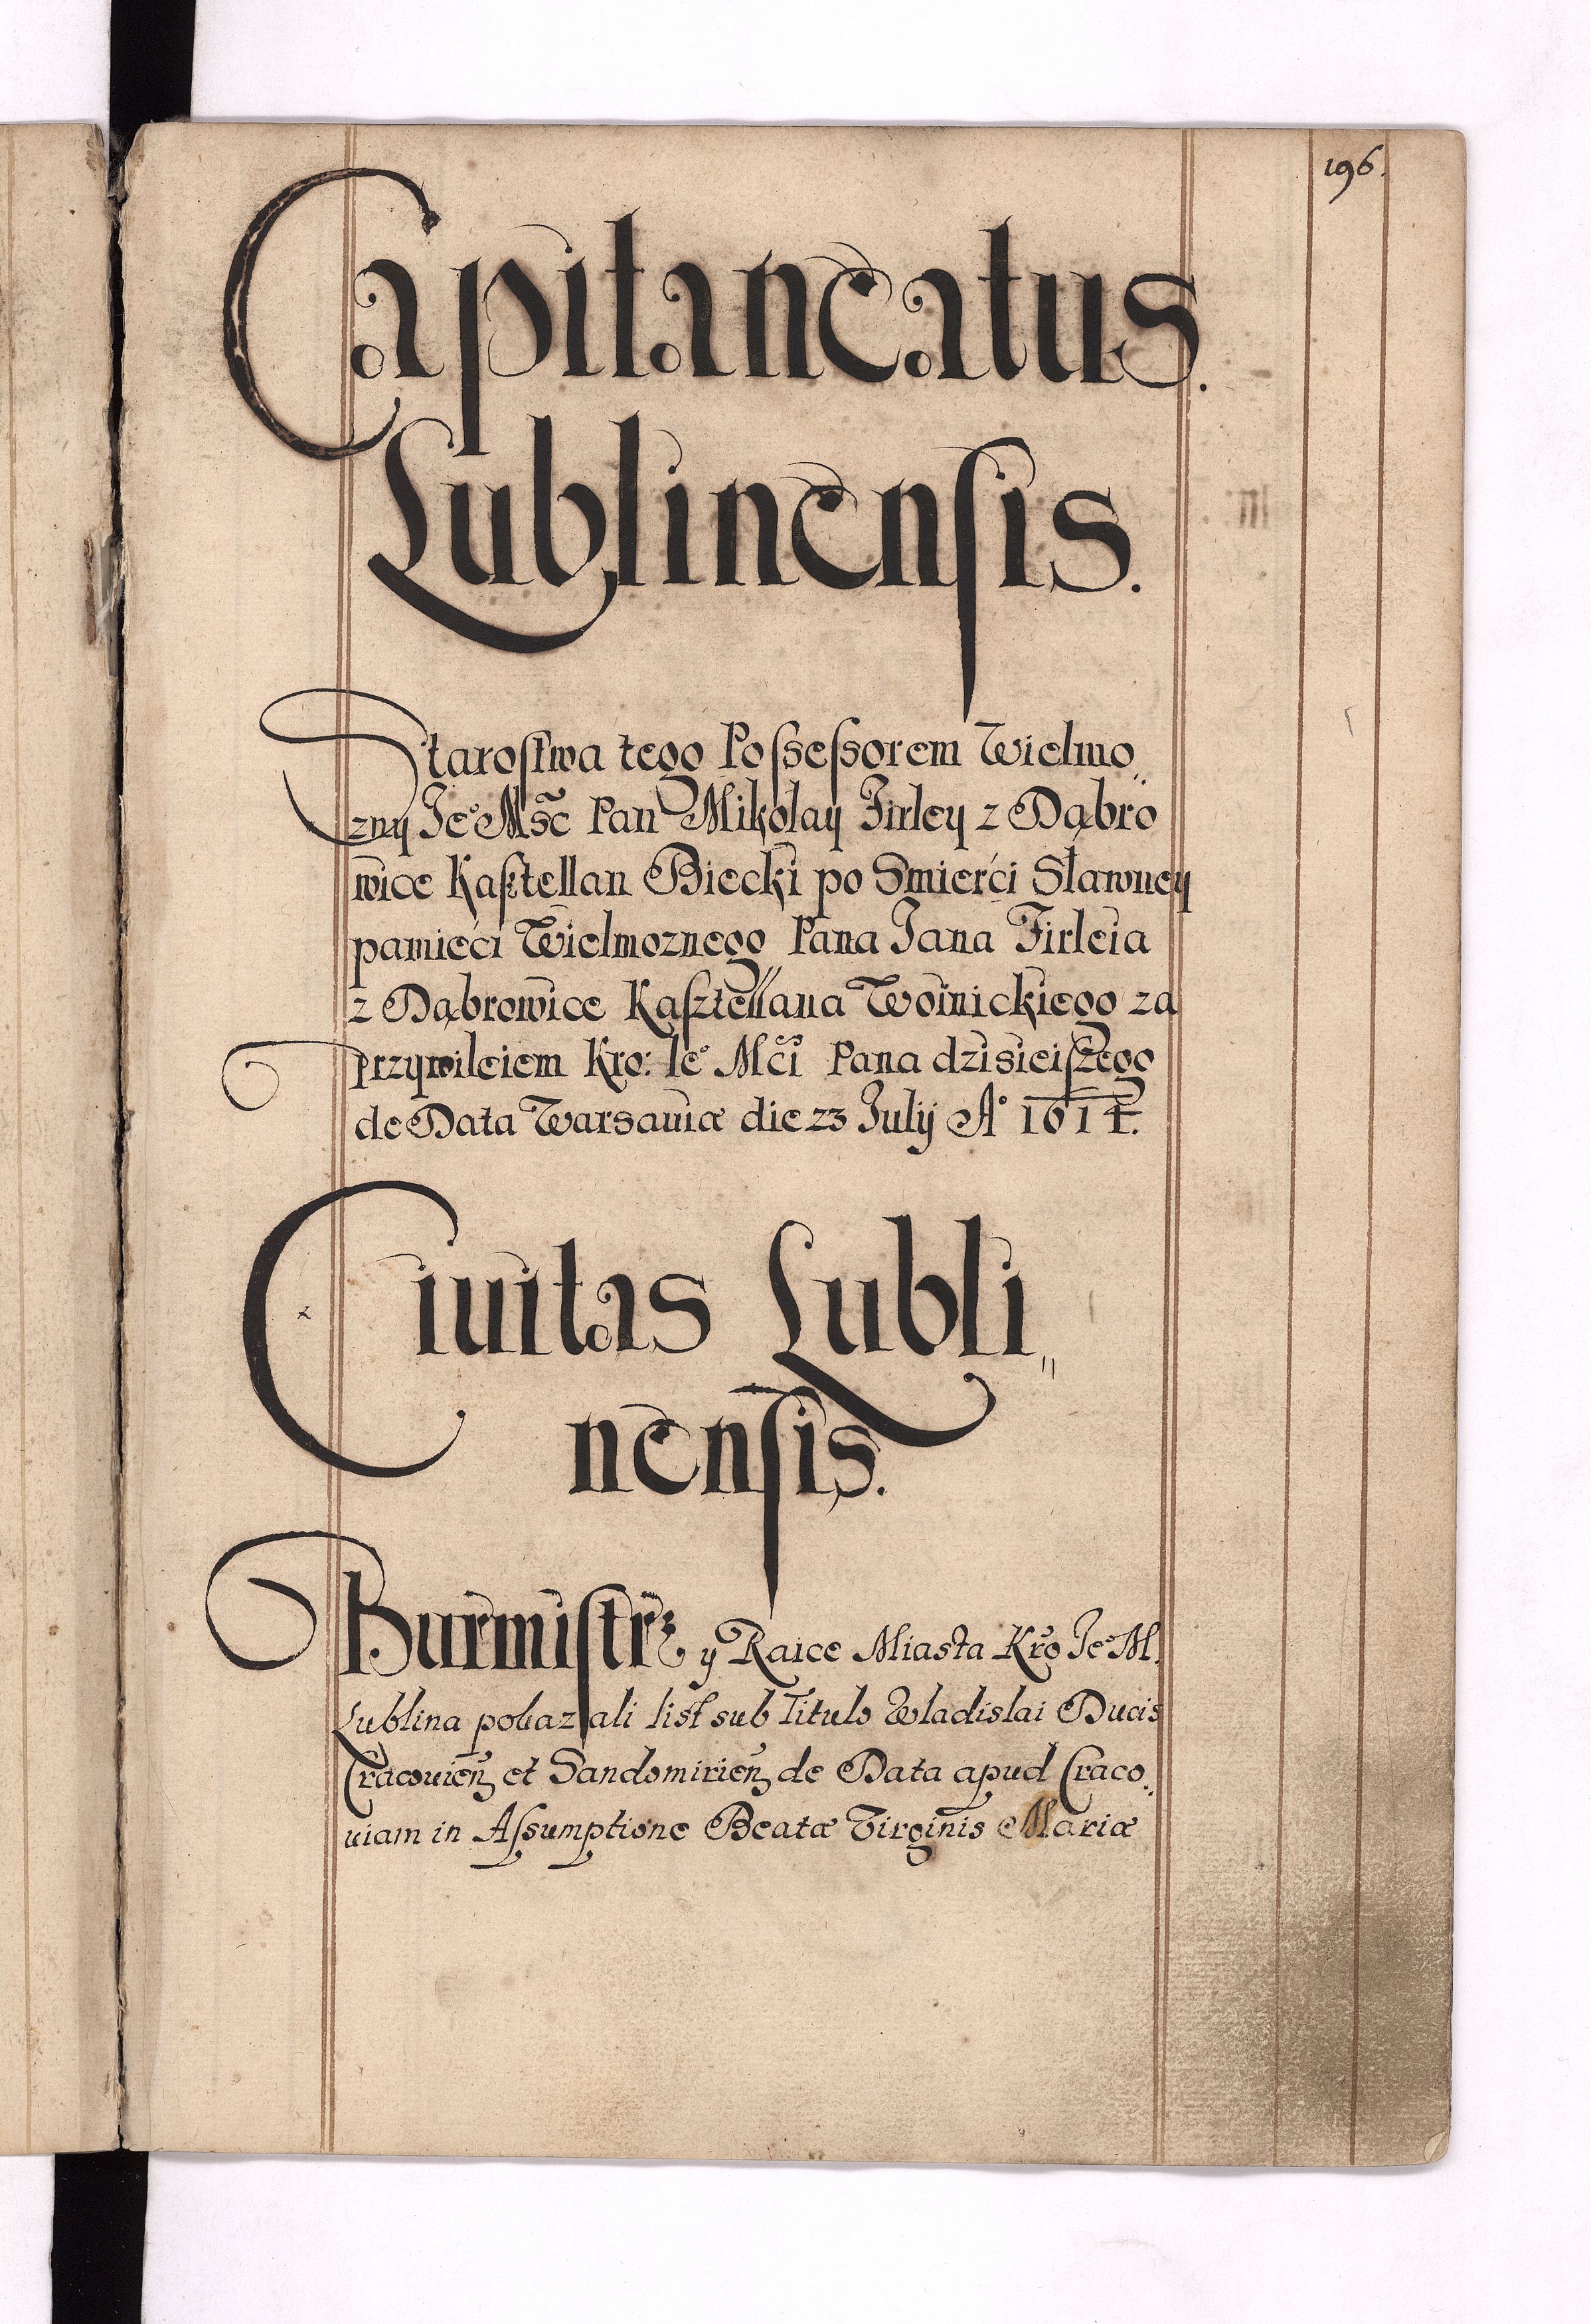 196.
Capitaneatus.
Lublinensis.
Starostwa tego Possessorem Wielmo„
zny Jeº Msc̃ Pan Mikolay Firley z Dąbro
wice Kasztellan Biecki po Smierći Sławney
pamieći Wielmoznego Pana Jana Firleia
z Dąbrowice Kasztellana Woinickiego za
przywileiem Kro: Ieº Mći Pana dzisieiszego
de Data Warsauiæ die 23 Julij Aº 1614.
Ciuitas Lubli„
nensis.
Burmistrz y Raice Miasta Kro Jeº M.
Lublina pokazali list sub Titulo Wladislai Ducis
Cracouien̄ et Sandomirien̄ de Data apud Craco„
uiam in Assumptione Beatæ Virginis Mariæ